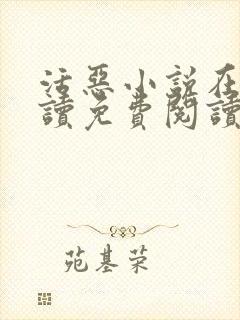 活惡小說在
讀免費閱讀
苑基荣